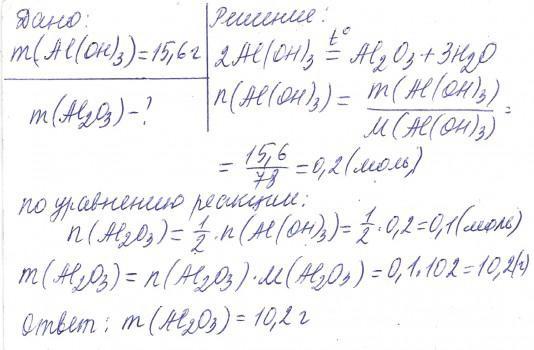 Дано:
m(Al(OH)₃)=15,6 г
m(Al₂O₃)-?
Решение:
2Al(OH)₃ t°= Al₂O₃+3H₂O
n(Al(OH)₃) = m(Al(OH)₃)/M(Al(OH)₃) =
= 15,6/78 = 0,2 (моль)
по уравнению реакции:
n(Al₂O₃) = 1/2 · n(Al(OH)₃) = 1/2 · 0,2 = 0,1 (моль)
m(Al₂O₃) = n(Al₂O₃) · M(Al₂O₃) = 0,1 · 102 = 10,2 (г)
Ответ: m(Al₂O₃) = 10,2 г